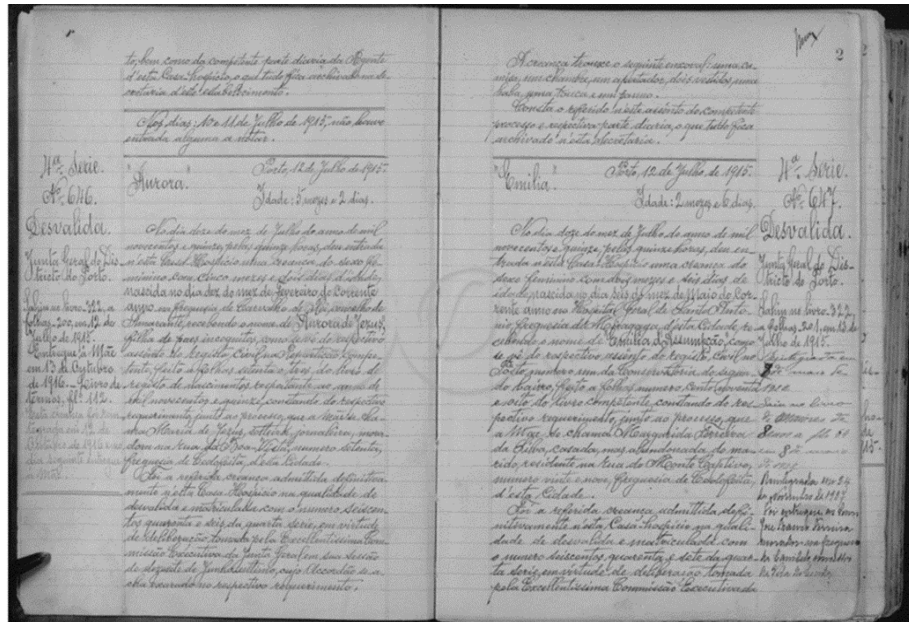 to, bem como da competente parte diaria da Regente
d'esta Casa-hospicio, o que tudo fica archivado na se-
cretaria d'este estabelecimento.
Nos dias: 10 e 11 de Julho de 1915, não houve
entrada alguma a notar.
4ª Serie.
Nº 646.
Desvalida.
Junta Geral do Dis-
tricto do Porto.
Sahiu no livro 322, a
folhas 200, em 12 de
Julho de 1915.
Entregue á Mãe
em 13 de Outubro
de 1916. Livro de
termos, fls. 112.
em 12 de
Outubro de 1916 e no
dia seguinte entregue
á Mãe.
"Aurora."
Porto, 12 de Julho de 1915.
Idade: 5 mezes e 2 dias.
No dia doze do mez de Julho do anno de mil
novecentos e quinze, pelas quinze horas, deu entrada
n'esta Casa Hospicio uma creança do sexo fe-
minino com cinco mezes e dois dias d'idade,
nascida no dia dez do mez de Fevereiro do corrente
anno na freguesia de Carvalho de Rei, concelho de
Amarante, recebendo o nome de Aurora de Jesus,
filha de paes incognitos, como se vê do respectivo
assento de registo civil na Repartição compe-
tente, feito a folhas setenta e tres, do livro de
registo de nascimentos respeitante ao anno de
mil novecentos e quinze, constando do respectivo
requerimento, junto ao processo, que a Mãe se cha-
ma Maria de Jesus, solteira, jornaleira, mora-
dora na rua da Boa-Vista, numero setenta,
freguesia de Cedofeita, d'esta Cidade.
Foi a referida creança admittida definitiva-
mente n'esta Casa Hospicio na qualidade de
desvalida e matriculada com o numero seiscen-
tos quarenta e seis, da quarta serie, em virtude
de deliberação tomada pela Excellentissima Com-
missão Executiva da Junta Geral em sua sessão
de dezesete de Junho ultimo, cujo Accordão se a-
cha lavrado no respectivo requerimento.
2
A creança trouxe o seguinte enxoval: uma ca-
misa, um chambre, um apertador, dois vestidos, uma
baba, uma touca e um panno.
Consta o referido n'este assento do competente
processo e respectiva parte diaria, o que tudo fica
archivado n'esta secretaria.
"Emilia."
Porto, 12 de Julho de 1915.
Idade: 2 mezes e 6 dias.
No dia doze do mez de Julho do anno de mil
novecentos e quinze, pelas quinze horas, deu en-
trada n'esta Casa-Hospicio uma creança do
sexo feminino com dois mezes e seis dias de
idade, nascida no dia seis do mez de Maio do cor-
rente anno no Hospital Geral de Santo Anto-
nio, freguesia de Miragaya, d'esta Cidade, re-
cebendo o nome de Emilia d'Assumpção, como
se vê do respectivo assento do registo civil no
Posto, numero um da Conservatoria do segun-
do bairro, feito a folhas numero cento noventa
e oito do livro competente, constando do res-
pectivo requerimento, junto ao processo, que
a Mãe se chama Margarida Ferreira
da Silva, casada, mas abandonada do ma-
rido, residente na rua do Monte Captivo,
numero vinte e nove, freguesia de Cedofeita,
d'esta Cidade.
Foi a referida creança admittida defi-
nitivamente n'esta Casa-Hospicio na quali-
dade de desvalida e matriculada com
o numero seiscentos quarenta e sete da quar-
ta serie, em virtude de deliberação tomada
pela Excellentissima Commissão Executiva da
4ª Serie.
Nº 647.
Desvalida.
Junta Geral do Dis-
tricto do Porto.
Sahiu no livro 322
a folhas 201, em 13 de
Julho de 1915.